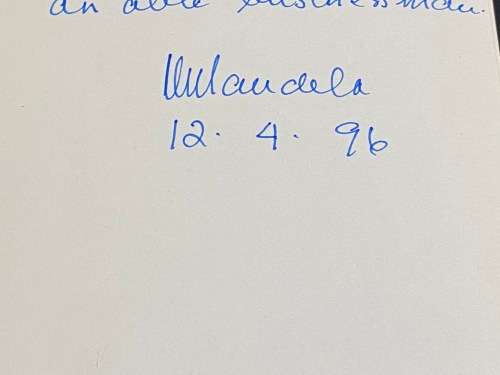 an able businessman.
NMandela
12. 4. 96